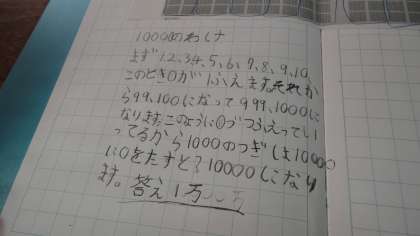 10000のわけ
まず1.2、3.4、5、6、7、8、9、10、
このとき0が1ふえます。それか
ら99、100になって999、1000に
なります。このように0づつふえってい
ってるから1000のつぎは10000
に0をたすと?10000にな
ります。答え1万